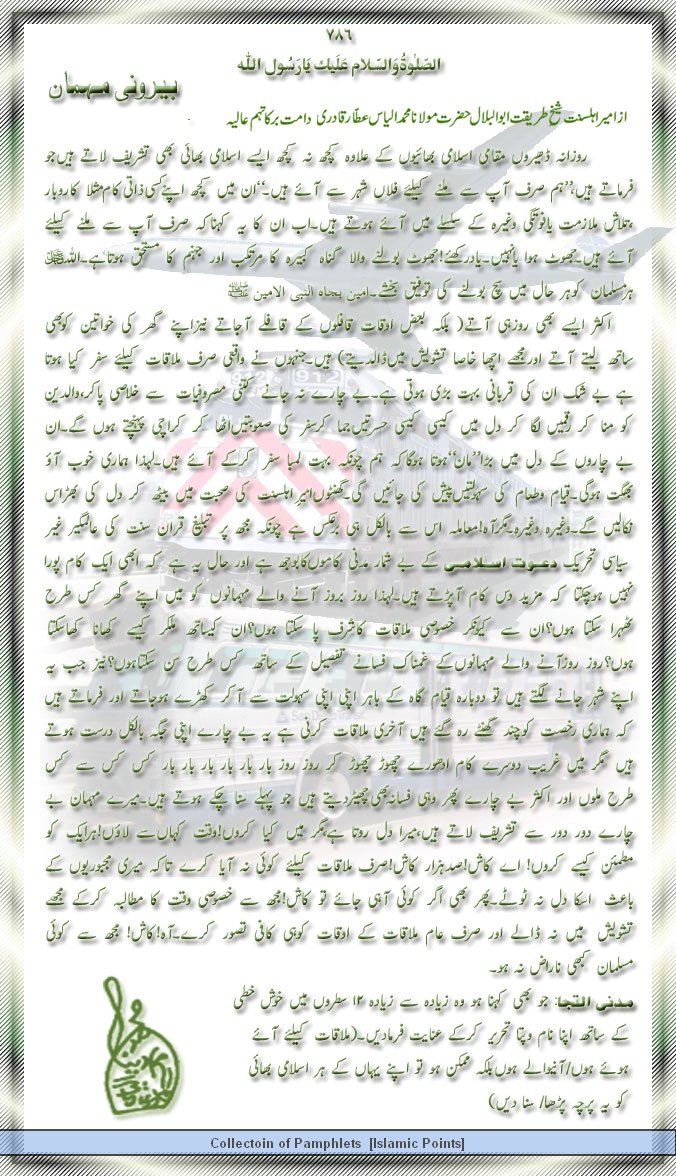 ۷۸٦
الصلوٰۃ والسلام علیک یارسول اللہ
بیرونی مہمان
از امیر اہلسنت شیخ طریقت ابوالبلال حضرت مولانا محمد الیاس عطار قادری دامت برکاتہم عالیہ
روزانہ ڈھیروں مقامی اسلامی بھائیوں کے علاوہ کچھ نہ کچھ ایسے اسلامی بھائی بھی تشریف لاتے ہیں جو
فرماتے ہیں،”ہم صرف آپ سے ملنے کیلئے فلاں شہر سے آئے ہیں۔“ان میں کچھ اپنے کسی ذاتی کام مثلا کاروبار
،تلاش ملازمت یا فوتگی وغیرہ کے سلسلے میں آئے ہوتے ہیں۔اب ان کا یہ کہنا کہ صرف آپ سے ملنے کیلئے
آئے ہیں۔جھوٹ ہوا یا نہیں۔یاد رکھئے!جھوٹ بولنے والا گناہ کبیرہ کا مرتکب اور جہنم کا مستحق ہوتا ہے۔اللہ
ہر مسلمان کو ہر حال میں سچ بولنے کی توفیق بخشے۔امین بجاہ النبی الامین ﷺ
اکثر ایسے بھی روز ہی آتے( بلکہ بعض اوقات قافلوں کے قافلے آجاتے نیز اپنے گھر کی خواتین کو بھی
ساتھ لیتے آتے اور مجھے اچھا خاصا تشویش میں ڈالدیتے) ہیں۔جنہوں نے واقعی صرف ملاقات کیلئے سفر کیا ہوتا
ہے بے شک ان کی قربانی بہت بڑی ہوتی ہے۔بے چارے نہ جانے کتنی مصروفیات سے خلاصی پاکر،والدین
کو منا کر رقمیں لگا کر دل میں کیسی کیسی حسرتیں جما کر سفر کی صعوبتیں اٹھا کر کراچی پہنچتے ہوں گے۔ان
بے چاروں کے دل میں بڑا”مان“ہوتا ہوگا کہ ہم چونکہ بہت لمبا سفر کرکے آئے ہیں۔لہذا ہماری خوب آؤ
بھگت ہوگی۔قیام وطعام کی سہولتیں پیش کی جائیں گی۔گھنٹوں امیر اہلسنت کی صحبت میں بیٹھ کر دل کی بھڑاس
نکالیں گے۔وغیرہ وغیرہ۔مگر آہ!معاملہ اس سے بالکل ہی برعکس ہے چونکہ مجھ پر تبلیغ قرآن سنت کی عالمگیر غیر
سیاسی تحریک دعوت اسلامی کے بے شمار مدنی کاموں کا بوجھ ہے اور حال یہ ہے کہ ابھی ایک کام پورا
نہیں ہو چکتا کہ مزید دس کام آپڑتے ہیں۔لہذا روز بروز آنے والے مہمانوں کو میں اپنے گھر کس طرح
ٹھہرا سکتا ہوں؟ان سے کیونکر خصوصی ملاقات کا شرف پا سکتا ہوں؟ان کیساتھ ملکر کیسے کھانا کھا سکتا
ہوں؟روز روز آنے والے مہمانوں کے غمناک فسانے تفصیل کے ساتھ کس طرح سن سکتا ہوں؟نیز جب یہ
اپنے شہر جانے لگتے ہیں تو دوبارہ قیام گاہ کے باہر اپنی اپنی سہولت سے آ کر کھڑے ہو جاتے اور فرماتے ہیں
کہ ہماری رخصت کو چند گھنٹے رہ گئے ہیں آخری ملاقات کرنی ہے یہ بے چارے اپنی جگہ بالکل درست ہوتے
ہیں مگر میں غریب دوسرے کام ادھورے چھوڑ چھوڑ کر روز روز بار بار بار بار بار بار کس کس سے کس
طرح ملوں اور اکثر بے چارے پھر وہی فسانہ بھی چھیڑ دیتے ہیں جو پہلے سنا چکے ہوتے ہیں۔میرے مہمان بے
چارے دور دور سے تشریف لاتے ہیں،میرا دل روتا ہے،مگر میں کیا کروں!وقت کہاں سے لاؤں!ہر ایک کو
مطمئن کیسے کروں! اے کاش!صد ہزار کاش!صرف ملاقات کیلئے کوئی نہ آیا کرے تاکہ میری مجبوریوں کے
باعث اسکا دل نہ ٹوٹے۔پھر بھی اگر کوئی آ ہی جائے تو کاش!مجھ سے خصوصی وقت کا مطالبہ کرکے مجھے
تشویش میں نہ ڈالے اور صرف عام ملاقات کے اوقات کو ہی کافی تصور کرے۔آہ!کاش! مجھ سے کوئی
مسلمان کبھی ناراض نہ ہو۔
مدنی التجا: جو بھی کہنا ہو وہ زیادہ سے زیادہ ۱۲ سطروں میں خوش خطی
کے ساتھ اپنا نام وپتا تحریر کرکے عنایت فرمادیں۔(ملاقات کیلئے آئے
ہوئے ہوں/آنیوالے ہوں بلکہ ممکن ہو تو اپنے یہاں کے ہر اسلامی بھائی
کو یہ پرچہ پڑھا/ سنا دیں)
Collectoin of Pamphlets [Islamic Points]